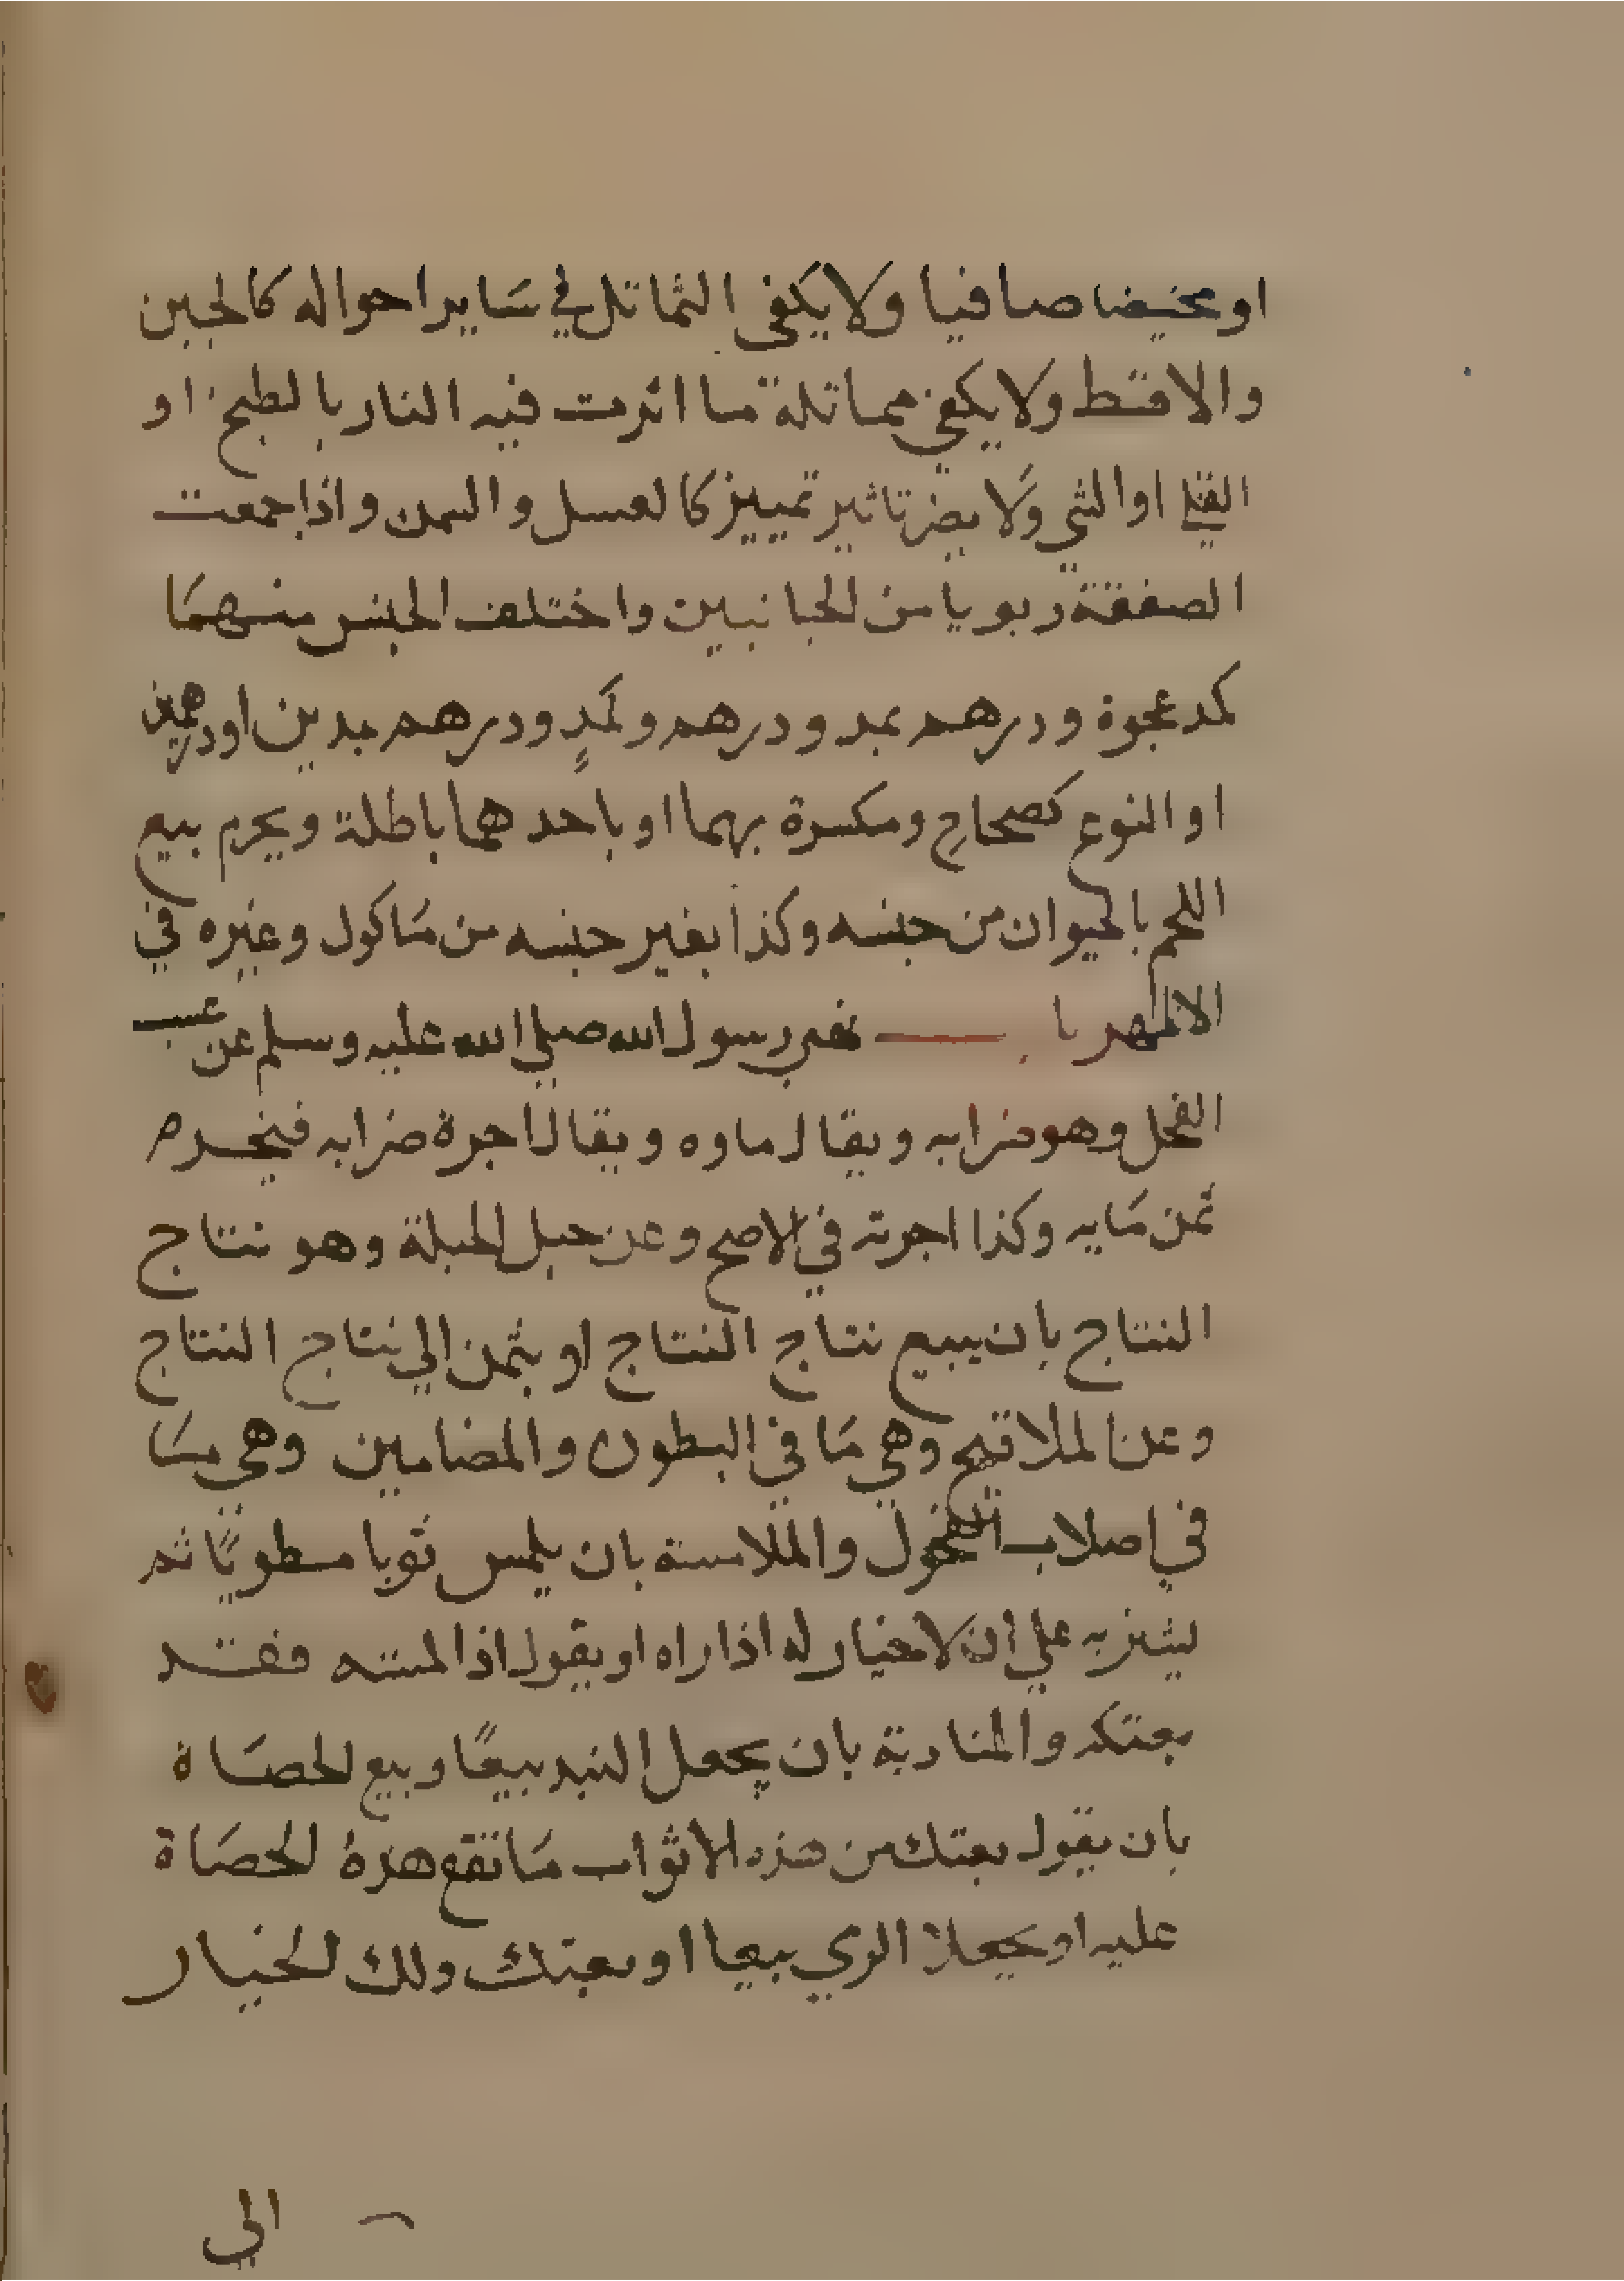 او مخيضا صافيا ولا يكفي التماثل في سَاير احواله كالجبن
والاقط ولا يكفي مماثلة ما اثرت فيه النار بالطبخ او
القلي او الشي وَلا يضر تاثير تمييز كالعسل والسمن واذا جمعت
الصفقة ربويا من الجانبين واختلف الجنس منهمَا
كمد عجوة ودرهم بمد ودرهم وكمَدٍ ودرهم بمدين او درهمين
او النوع كصحاحِ ومكسرة بهما او باحدهما باطلة ويحرم بيع
اللحم بالحيوان من جنسه وكذا بغير جنسه من مَاكول وغيره في
الاظهر باب نهى رسول الله صلي الله عليه وسلم عن عسب
الفحل وهو ضرابه ويقال ماوه ويقال اجرة ضرابه فيحرم
ثمن مَايه وكذا اجرته في الاصح وعن حبل الحبلة وهو نتاج
النتاج بان يبيع نتاج النتاج او بثمن الي نتاج النتاج
وعن الملاقيح وهي مَا في البطون والمضامين وهي مَا
في اصلاب الفحول والملامسة بان يلمس ثوبا مطويًا ثم
يشتريه علي ان لا خيار له اذا راه او يقول اذا لمسته فقد
بعتكه والمنابذة بان يجعل النبذ بيعًا وبيع الحصَاة
بان يقول بعتك من هذه الاثواب مَا تقع هذهُ الحصَاة
عليه او يَجعلا الرمي بيعا او بعتك ولك الخيار
الي